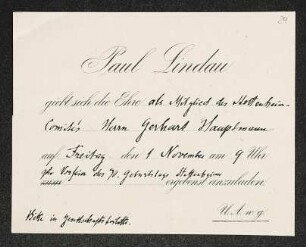 Paul Lindau
giebt sich die Ehre als Mitglied des Stettenheim-
Comités Herrn Gerhart Hauptmann
auf Freitag den 1 November um 9 Uhr
zur Vorfeier des 70. Geburtstags Stettenheim
ergebenst einzuladen.
U. A. w. g.
Bitte in Gesellschaftstoilette.